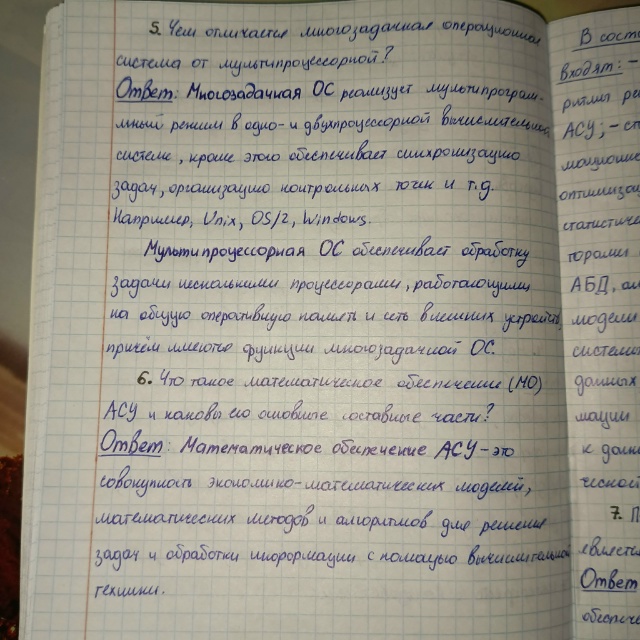 5. Чем отличается многозадачная операционная
система от мультипроцессорной?
Ответ: Многозадачная ОС реализует мультипрограм-
мный режим в одно- и двухпроцессорной вычислительной
системе, кроме этого обеспечивает синхронизацию
задач, организацию контрольных точек и т.д.
Например, Unix, OS/2, Windows.
Мультипроцессорная ОС обеспечивает обработку
задачи несколькими процессорами, работающими
на общую оперативную память и сеть внешних устройств,
причём имеются функции многозадачной ОС.
6. Что такое математическое обеспечение (МО)
АСУ и каковы его основные составные части?
Ответ: Математическое обеспечение АСУ - это
совокупность экономико-математических моделей,
математических методов и алгоритмов для решения
задач и обработки информации с помощью вычислительной
техники.
В сост
входят: -
АСУ; - ст
оптимизац
статистиче
торами
АБД, ал
модели
системы
данных
мации
к данн
ческой
7. П
является
Ответ
обеспечен